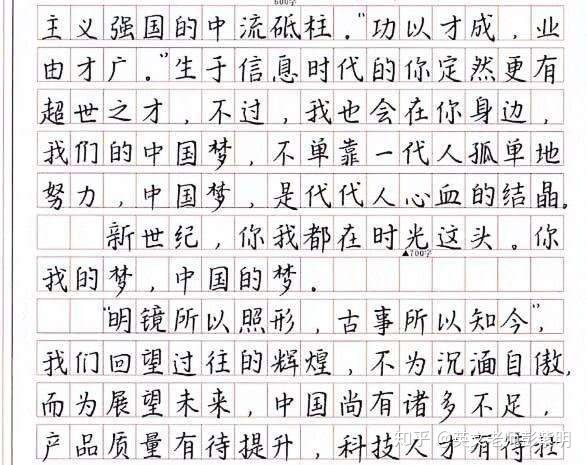 600字
主义强国的中流砥柱。"功以才成，业
由才广。"生于信息时代的你定然更有
超世之才，不过，我也会在你身边，
我们的中国梦，不单靠一代人孤单地
努力，中国梦，是代代人心血的结晶。
新世纪，你我都在时光这头。你
▲700字
我的梦，中国的梦。
"明镜所以照形，古事所以知今"，
我们回望过往的辉煌，不为沉湎自傲，
而为展望未来，中国尚有诸多不足，
产品质量有待提升，科技人才有待壮
知乎 @英文老师彭学明